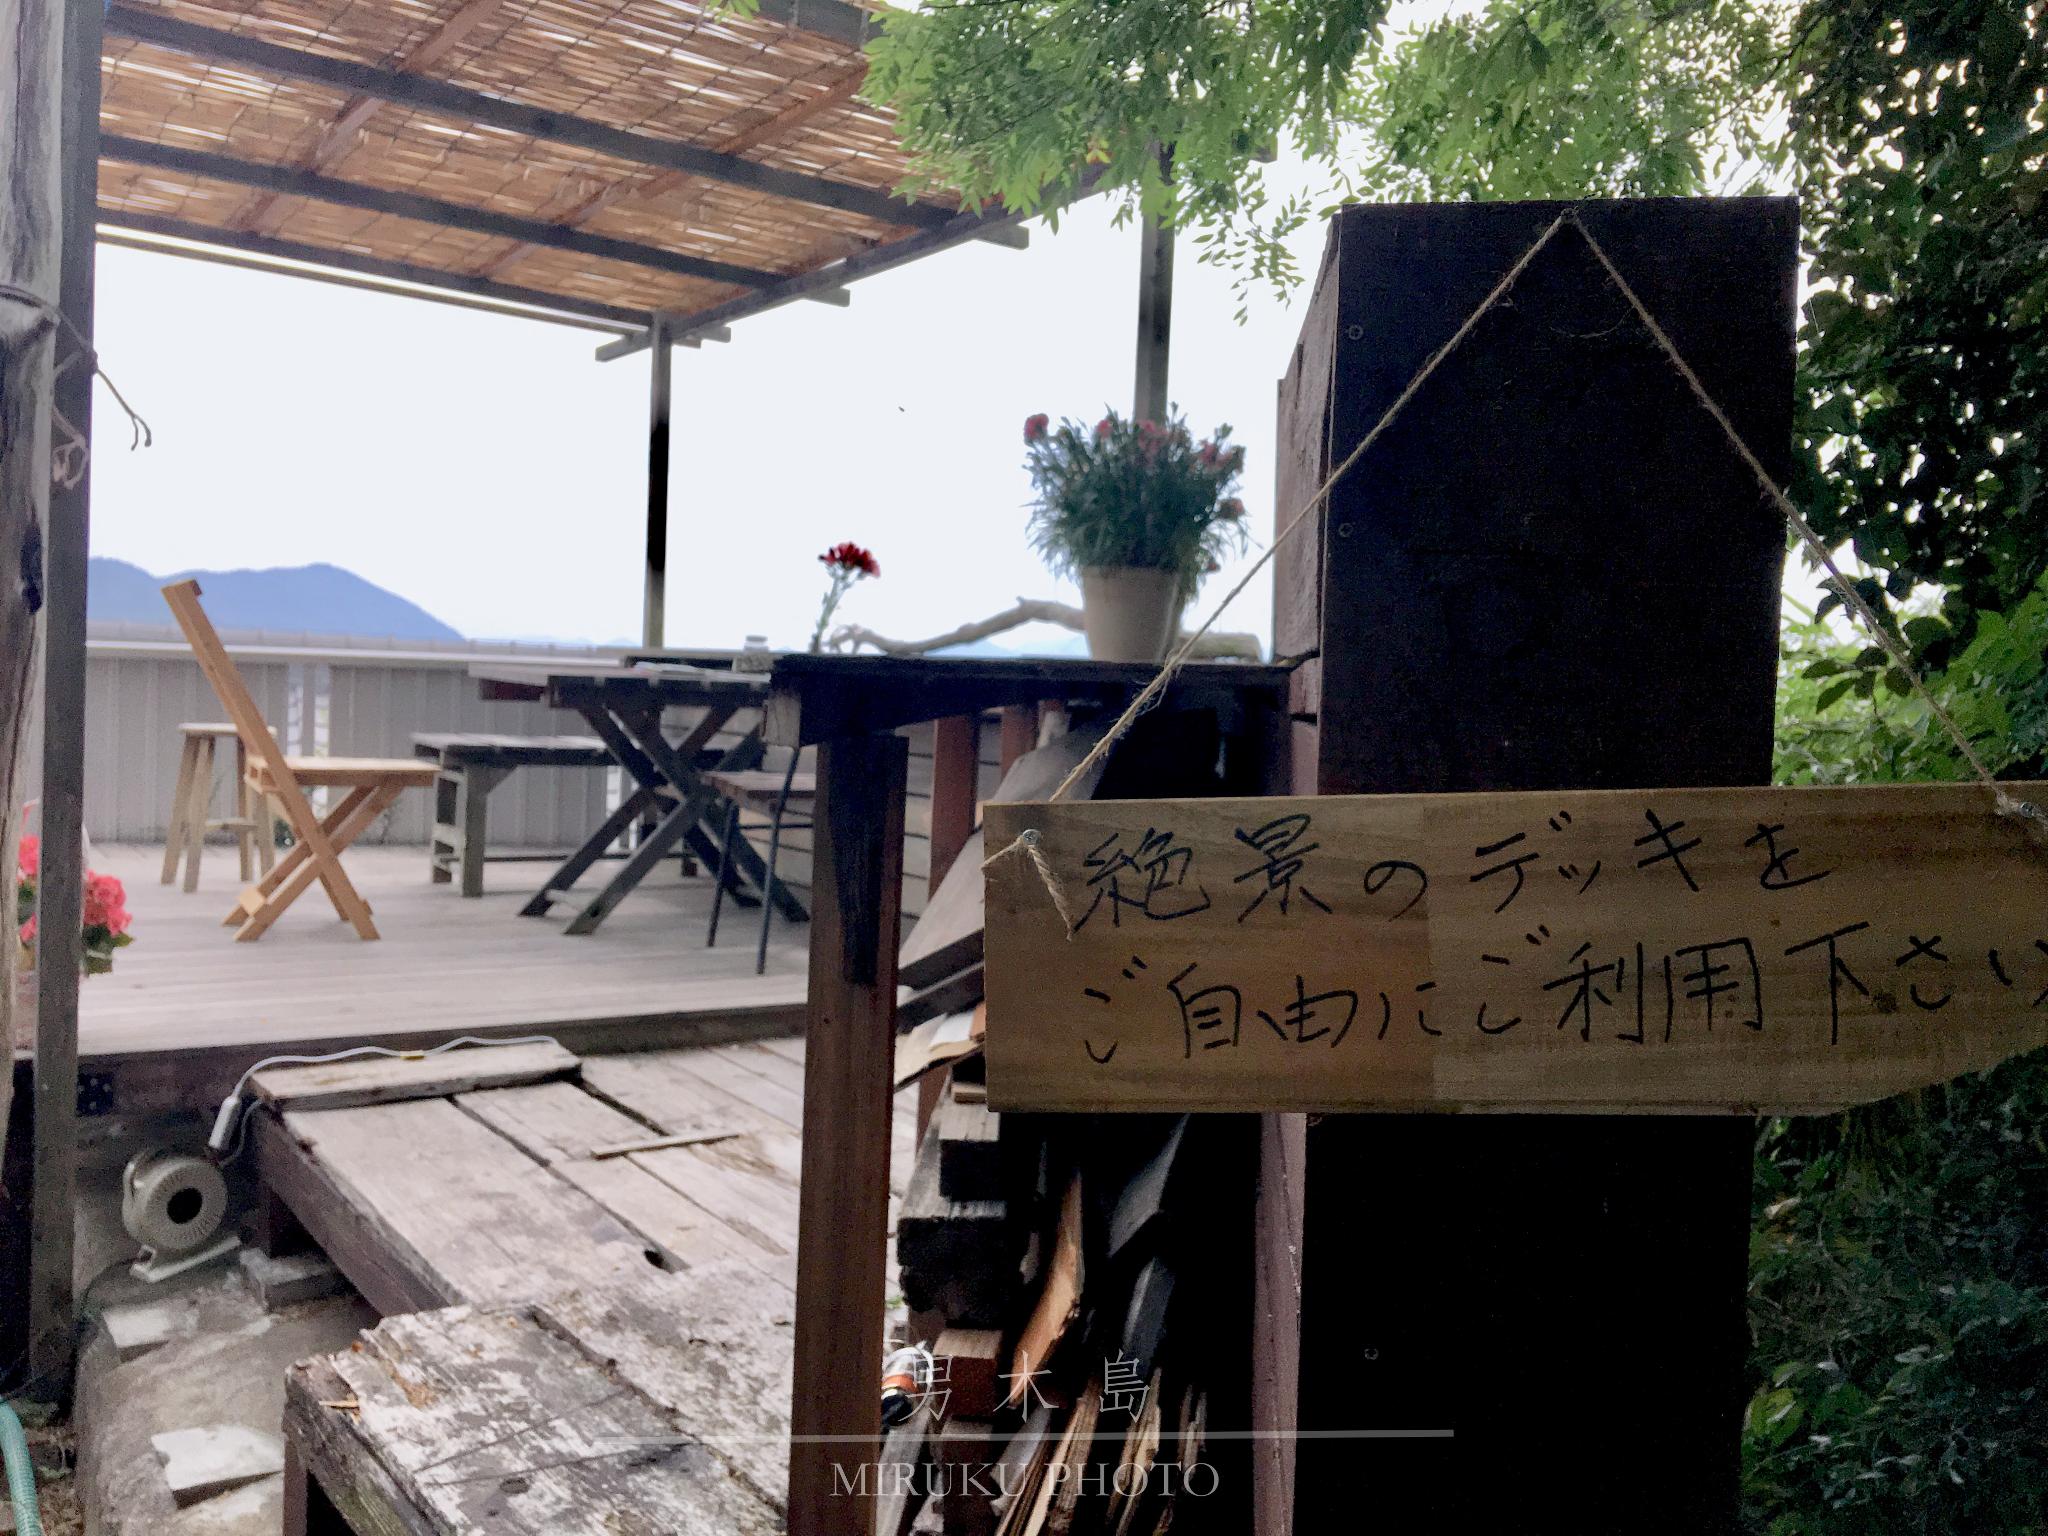 絶景のデッキを
ご自由にご利用下さい
男木島
MIRUKU PHOTO